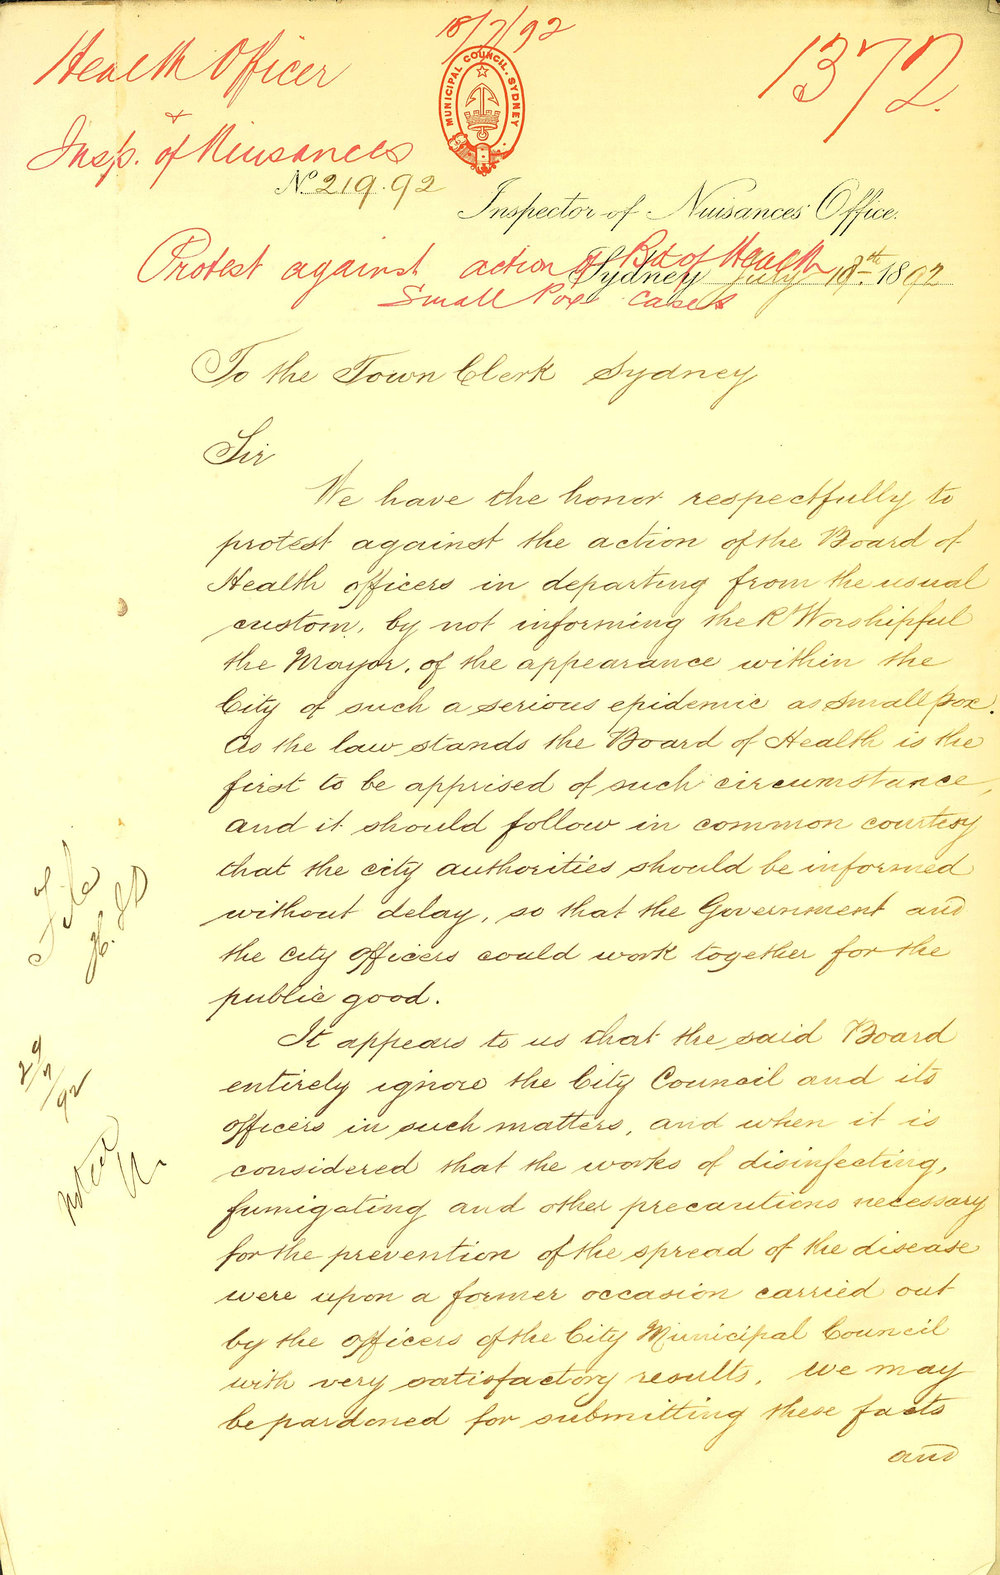 18/7/92
Health Officer
1372.
MUNICIPAL COUNCIL. SYDNEY
&
Insp. of Nuisances
No. 219.92
Inspector of Nuisances Office.
Protest against action of Bd of Health
Sydney July 18th 1892
Small Pox Cases
To the Town Clerk Sydney
Sir
We have the honor respectfully to
protest against the action of the Board of
Health officers in departing from the usual
custom, by not informing the R Worshipful
the Mayor, of the appearance within the
City of such a serious epidemic as small pox.
As the law stands the Board of Health is the
first to be apprised of such circumstance,
and it should follow in common courtesy
that the city authorities should be informed
without delay, so that the Government and
the city officers could work together for the
public good.
It appears to us that the said Board
entirely ignore the City Council and its
officers in such matters, and when it is
considered that the works of disinfecting,
fumigating and other precautions necessary
for the prevention of the spread of the disease
were upon a former occasion carried out
by the officers of the City Municipal Council
with very satisfactory results, we may
be pardoned for submitting these facts
and
File
29/7/92
noted